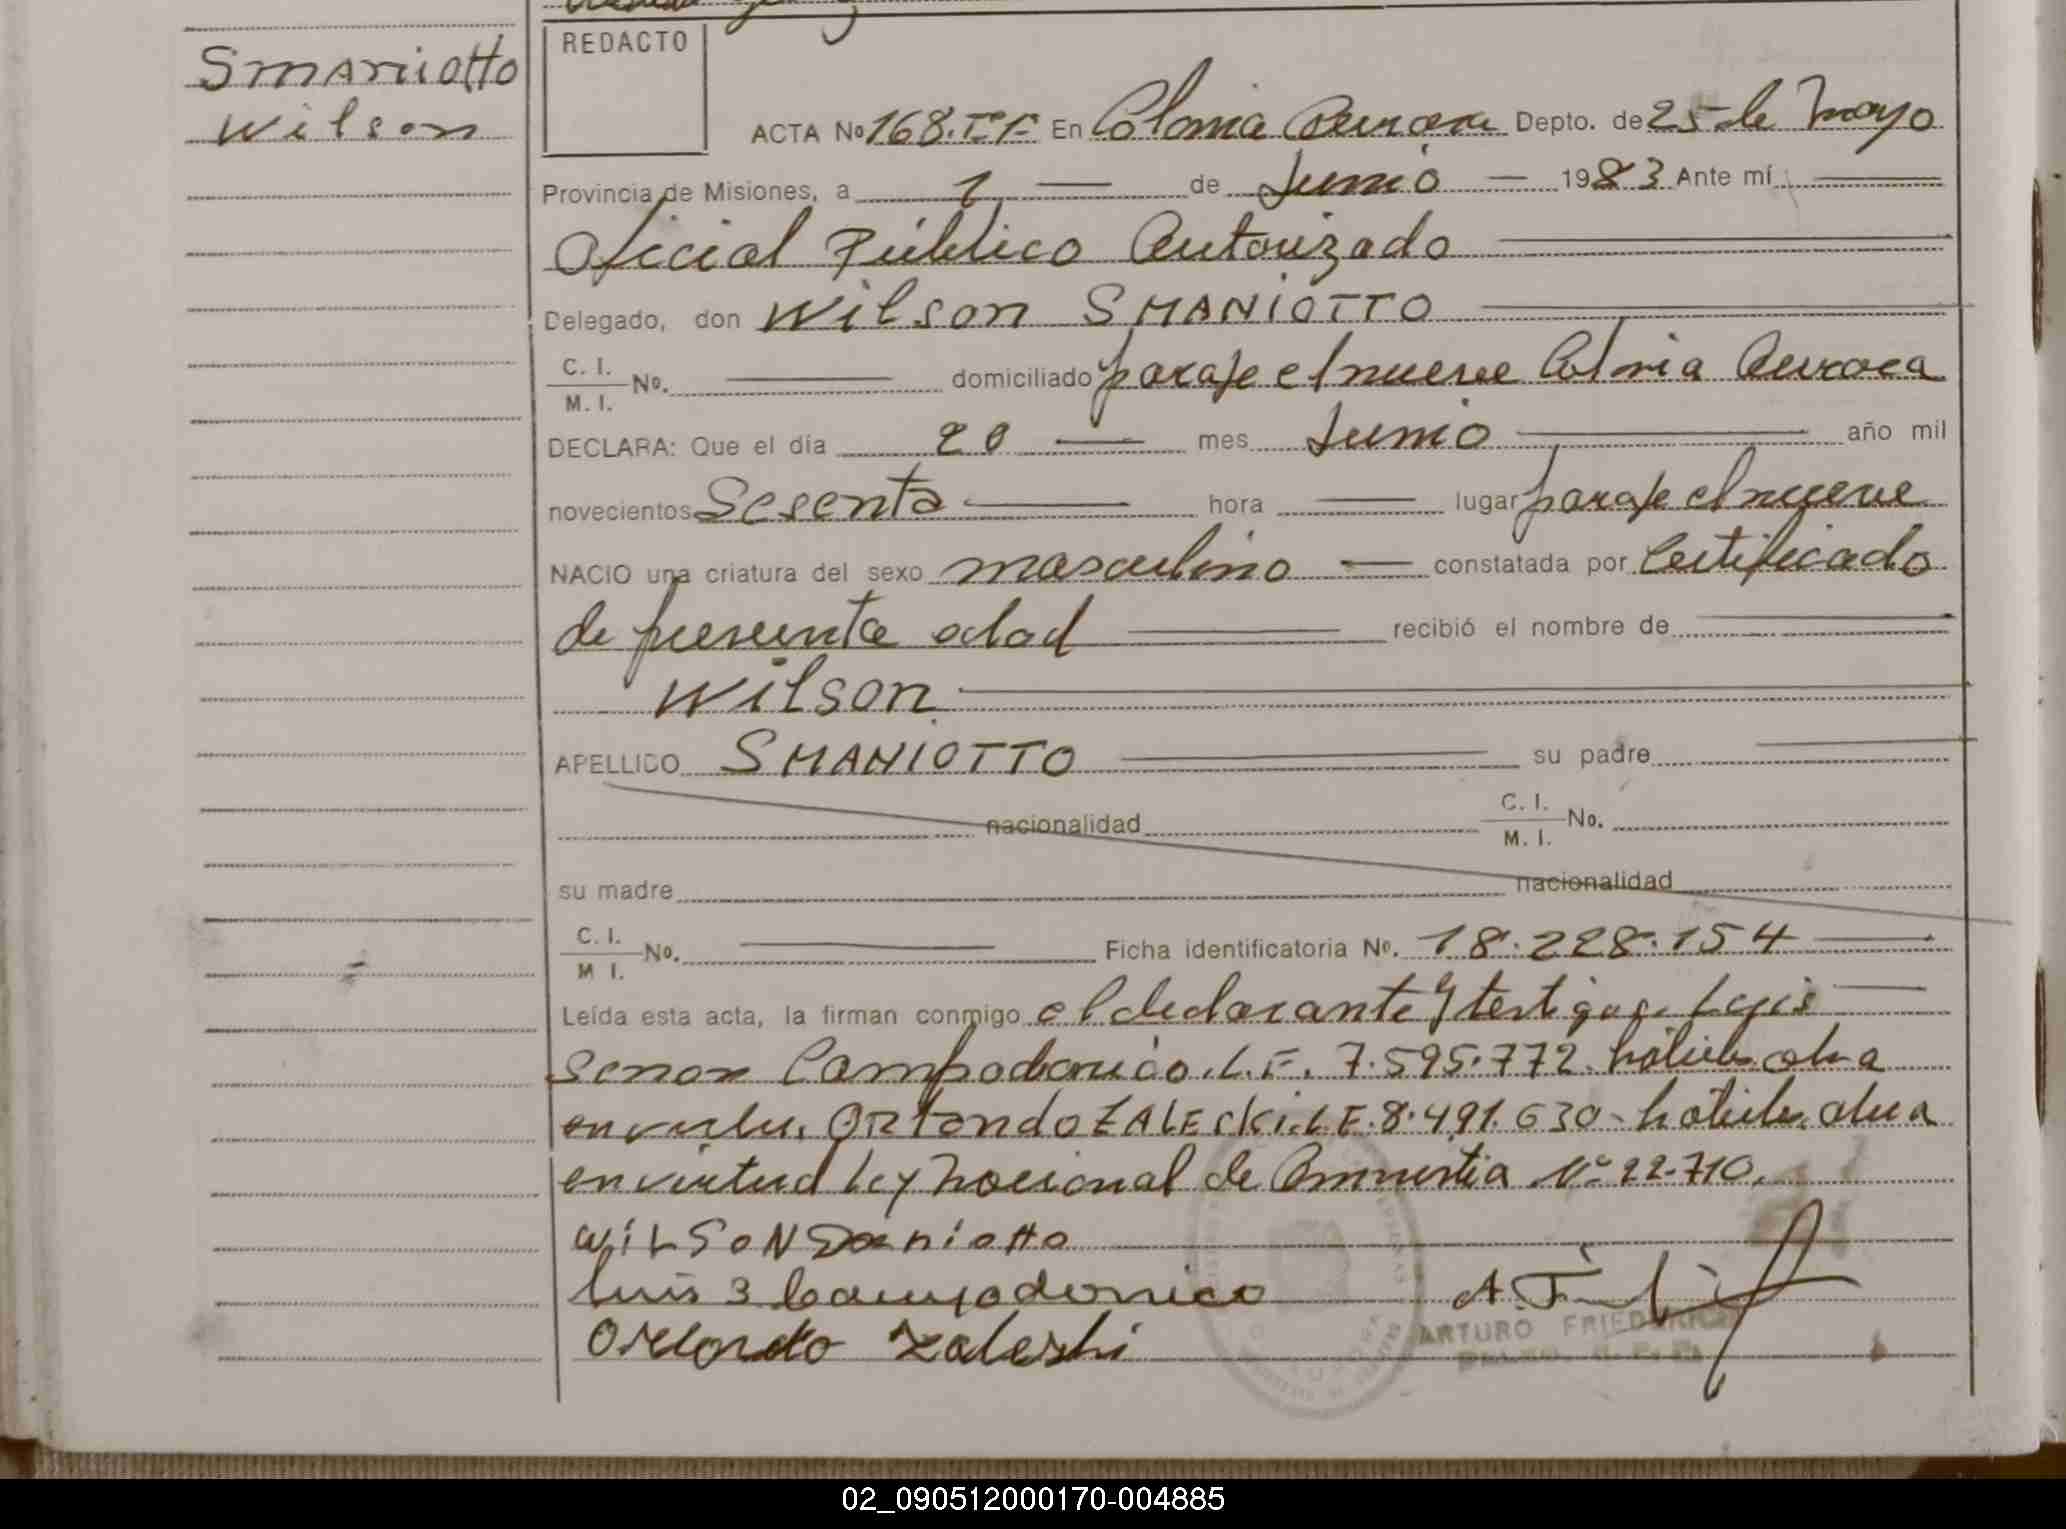 Smaniotto
Wilson
REDACTO
ACTA No 168. Tº I- En Colonia Aurora Depto. de 25 de Mayo
Provincia de Misiones, a 1 — de Junio — 1983 Ante mí —
Oficial Público Autorizado
Delegado, don Wilson SMANIOTTO
C. I.
M. I. No. — domiciliado paraje el nueve Colonia Aurora
DECLARA: Que el día 20 — mes Junio — año mil
novecientos Sesenta — hora — lugar paraje el nueve
NACIO una criatura del sexo masculino — constatada por Certificado
de presunta edad — recibió el nombre de —
Wilson
APELLIDO SMANIOTTO — su padre
nacionalidad C. I.
M. I. No.
su madre nacionalidad
C. I.
M I. No. — Ficha identificatoria No. 18.228.154 —
Leída esta acta, la firman conmigo el declarante y testigos. Luis —
Senon Campodonico. L.E. 7.595.772.
Orlando ZALESKI. L.E. 8.491.630-
en virtud ley nacional de Amnistia Nº 22.710.
WILSON Smaniotto
Luis S Campodonico
Orlando Zaleski
ARTURO
02_090512000170-004885